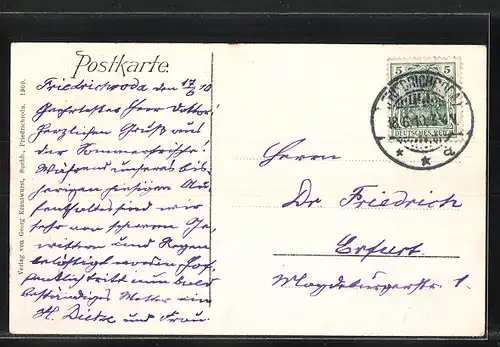 Postkarte.
Friedrichroda den 17/6 10
Geehrtester Herr Doktor!
Herzlichen Gruß aus
der Sommerfrische!
Während unseres bis-
herigen hiesigen Auf-
enthaltes sind wir
sehr von schweren Ge-
wittern und Regen
belästigt worden. Hof-
fentlich tritt nun bald
beständiges Wetter ein
H. Dietze und Frau.
Verlag von Georg Friedrichroda. 1909.
5 5
DEUTSCHES REICH
FRIEDRICHRODA
18.6.10
Herrn
Dr. Friedrich
Erfurt.
Magdeburgerstr. 1.